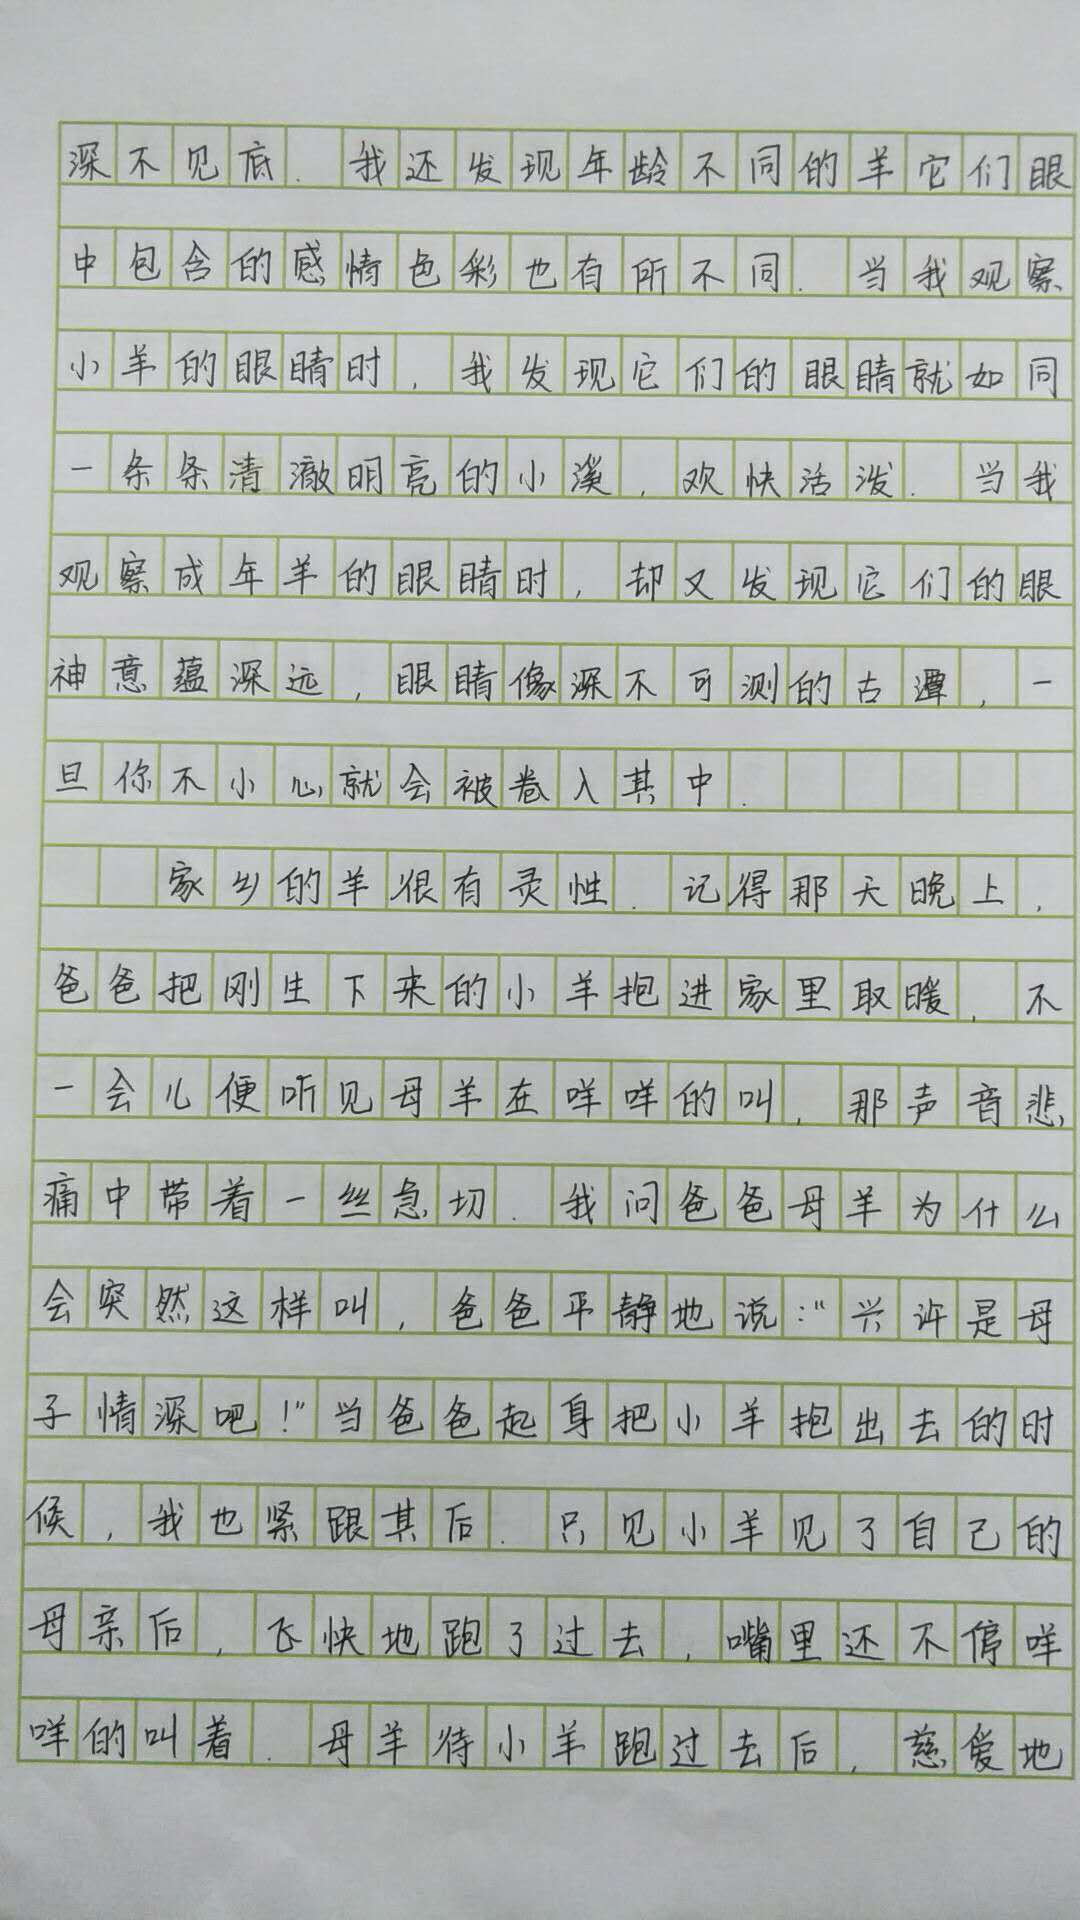 深不见底.我还发现年龄不同的羊它们眼
中包含的感情色彩也有所不同.当我观察
小羊的眼睛时,我发现它们的眼睛就如同
一条条清澈明亮的小溪,欢快活泼.当我
观察成年羊的眼睛时,却又发现它们的眼
神意蕴深远,眼睛像深不可测的古潭,一
旦你不小心就会被卷入其中.
家乡的羊很有灵性.记得那天晚上,
爸爸把刚生下来的小羊抱进家里取暖,不
一会儿便听见母羊在咩咩的叫,那声音悲
痛中带着一丝急切.我问爸爸母羊为什么
会突然这样叫,爸爸平静地说:"兴许是母
子情深吧!"当爸爸起身把小羊抱出去的时
候,我也紧跟其后.只见小羊见了自己的
母亲后,飞快地跑了过去,嘴里还不停咩
咩的叫着.母羊待小羊跑过去后,慈爱地